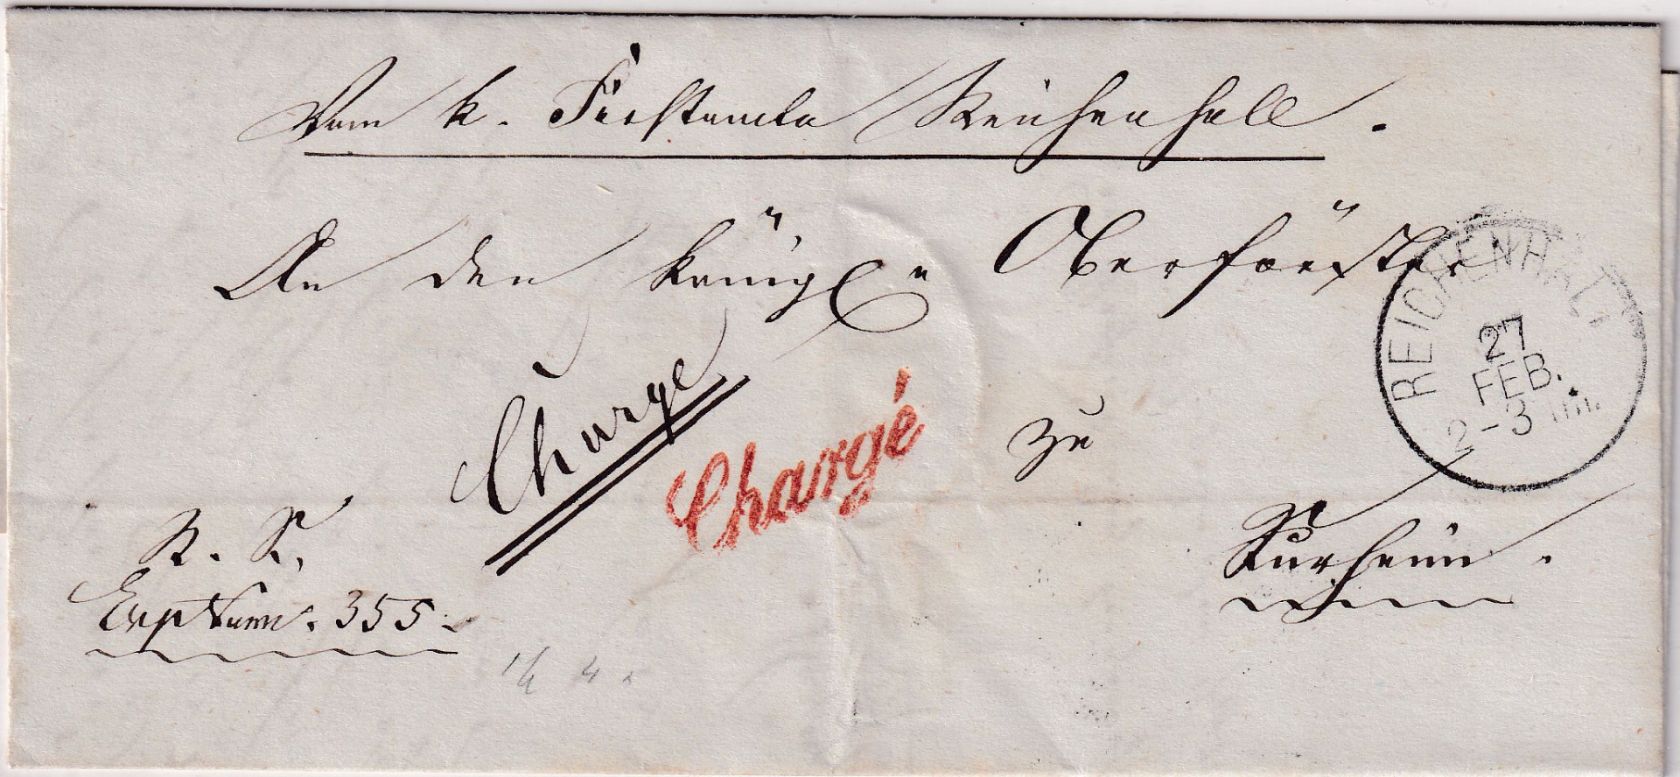 Vom k. Forstamte Reichenhall.
An den königl. Oberförster
REICHENHALL
27
FEB.
2-3
Chargé
Chargé
zu
R. S.
Exp Num. 355.
Surheim.